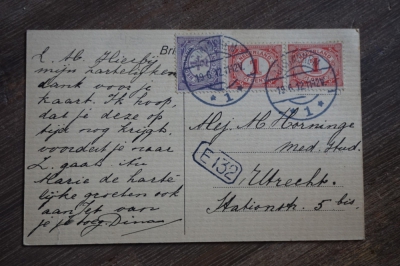 Bri
L. M. Hierbij
mijn hartelijken
dank voor je
kaart. Ik hoop,
dat je deze op
tijd nog krijgt,
voordat je naar
Z. gaat. Nu
Marie de harte-
lijke groeten ook
aan Jet van
je je toeg. Dina
19.6.12.
1
1
1
19.6.12.
1
Mej. M Horninge
Med. Stud.
E132
Utrecht.
Stationstr. 5 bis.